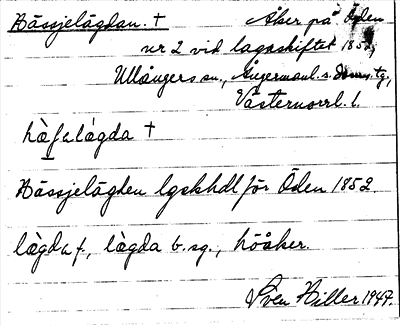 Hässjelägdan. † Åker på Öden
nr 2 vid lagaskiftet 1852,
Ullångers sn., Ångermanl. s. tg,
Västernorrl. l.
hàʃelágda †
Hässjelägden lgskhdl för Öden 1852.
lägda f., lägda b. sg., höåker.
Sven Hiller 1947.